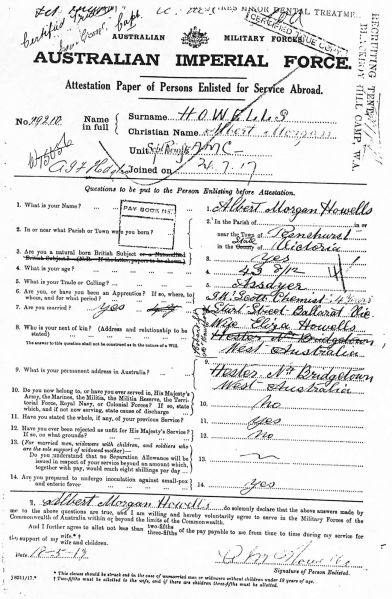 REQUIRES MINOR DENTAL TREATMENT
CERTIFIED TRUE COPY
RECRUITING TENT
BLACKBOY HILL CAMP, W.A.
Certified
Capt.
AUSTRALIAN MILITARY FORCES.
AUSTRALIAN IMPERIAL FORCE.
Attestation Paper of Persons Enlisted for Service Abroad.
No. 29210
Name in full
Surname HOWELLS
Christian Name Albert Morgan
Unit AMC
Joined on 21.7.17
Questions to be put to the Person Enlisting before Attestation.
PAY BOOK No.
1. What is your Name?
1. Albert Morgan Howells
2. In or near what Parish or Town were you born?
2. In the Parish of
near the Town of Penshurst
in the County of State Victoria
3. Are you a natural born British Subject or a Naturalised British Subject? (N.B.—If the latter, papers to be shown.)
3. Yes
4. What is your age?
4. 43 8/12
5. What is your Trade or Calling?
5. Assayer
6. Are you, or have you been an Apprentice? If so, where, to whom, and for what period? Yes
6. Scott Chemist 4 years
Sturt Street Ballarat Vic
7. Are you married?
8. Who is your next of kin? (Address and relationship to be stated)
The answer to this question shall not be construed as in the nature of a Will.
Wife Eliza Howells
Hester Nr Bridgetown
West Australia
9. What is your permanent address in Australia?
9. Hester Nr Bridgetown
West Australia
10. Do you now belong to, or have you ever served in, His Majesty's Army, the Marines, the Militia, the Militia Reserve, the Territorial Force, Royal Navy, or Colonial Forces? If so, state which, and if not now serving, state cause of discharge
10. No
11. Have you stated the whole, if any, of your previous Service?
11. Yes
12. Have you ever been rejected as unfit for His Majesty's Service? If so, on what grounds?
12. No
13. (For married men, widowers with children, and soldiers who are the sole support of widowed mother)—
Do you understand that no Separation Allowance will be issued in respect of your service beyond an amount which, together with pay, would reach eight shillings per day
13. ~
14. Are you prepared to undergo inoculation against small-pox and enteric fever
14. Yes
I, Albert Morgan Howells do solemnly declare that the above answers made by me to the above questions are true, and I am willing and hereby voluntarily agree to serve in the Military Forces of the Commonwealth of Australia within or beyond the limits of the Commonwealth.
And I further agree to allot not less than two-fifths three-fifths of the pay payable to me from time to time during my service for the support of my wife.* † wife and children.
Date
A M Howells
Signature of Person Enlisted.
* This clause should be struck out in the case of unmarried men or widowers without children under 18 years of age.
† Two-fifths must be allotted to the wife, and if there are children three-fifths must be allotted.